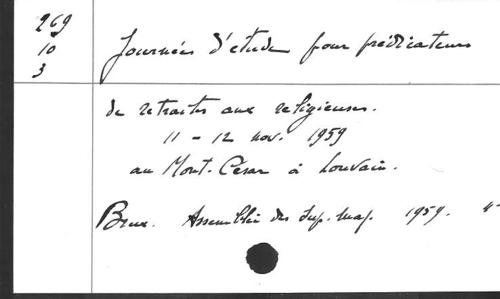 269
10
3
Journées d'étude pour prédicateurs
de retraites aux religieuses.
11 - 12 nov. 1959
au Mont-César à Louvain.
Brux. Assemblée des Sup. Maj. 1959.